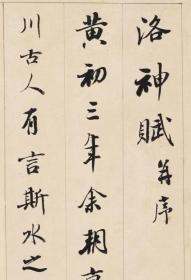 洛神賦并序
黄初三年余朝京
川古人有言斯水之